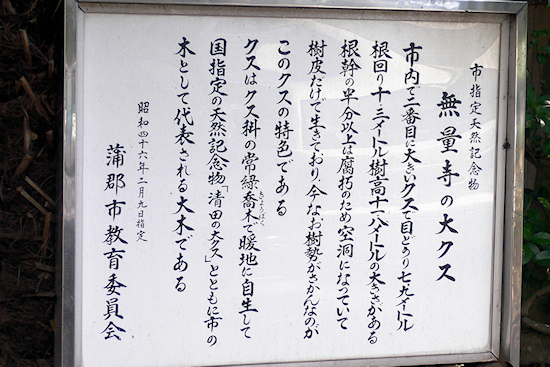 市指定天然記念物
無量寺の大クス
市内で二番目に大きいクスで目どおり七、九メートル
根回り十三メートル樹高十八メートルの大きさがある
根幹の半分以上は腐朽のため空洞になっていて
樹皮だけで生きており、今なお樹勢がさかんなのが
このクスの特色である
クスはクス科の常緑喬木で暖地に自生して
きょうぼく
国指定の天然記念物「清田の大クス」とともに市の
木として代表される大木である
昭和四十六年二月九日指定
蒲郡市教育委員会